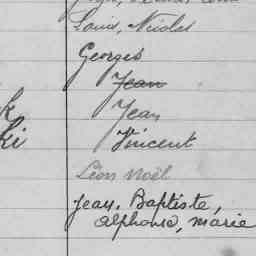 Louis, Nicolas
Georges
Jean
k
Jean
ki
Vincent
Léon Noël
Jean. Baptiste,
alphonse, marie